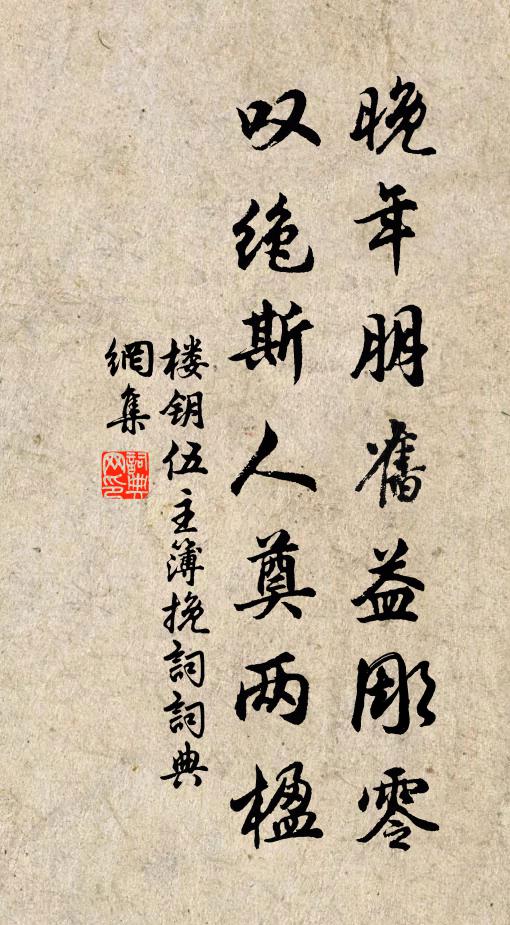 晚年朋舊益彫零
叹绝斯人奠两楹
楼钥伍主簿挽詞詞典
網集
詞典网印